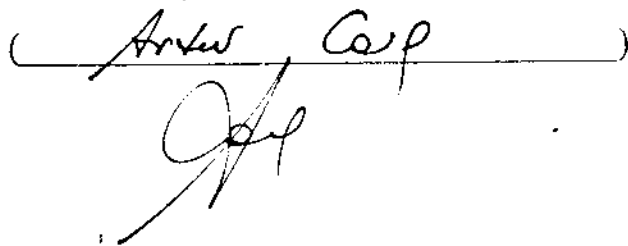 ( Artur Carp )